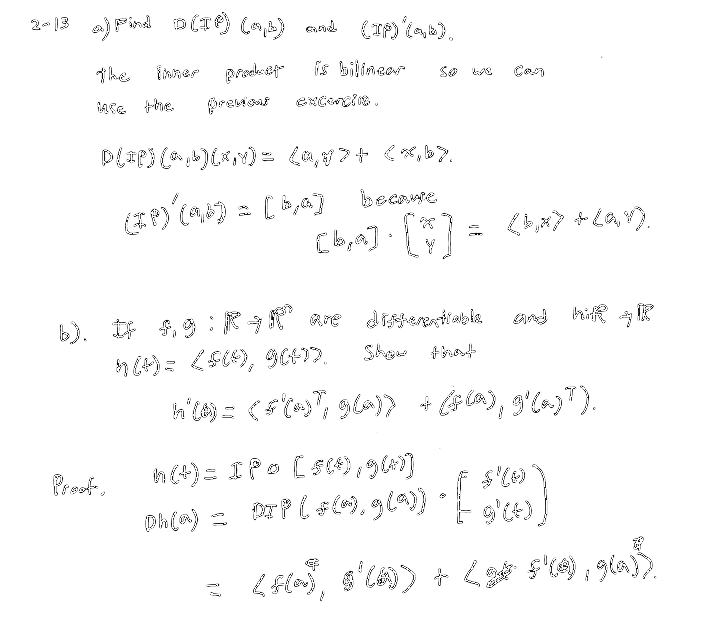 2-13 a) Find D(IP)(a,b) and (IP)'(a,b).
The inner product is bilinear so we can
use the previous excercise.
D(IP)(a,b)(x,y) = <a,y> + <x,b>.
(IP)'(a,b) = [b,a] because
[b,a] · [x y] = <b,x> + <a,y>.
b). If f,g : R → Rⁿ are differentiable and h:R → R
h(t) = <f(t), g(t)>. Show that
h'(a) = <f'(a)ᵀ, g(a)> + <f(a), g'(a)ᵀ>.
Proof. h(t) = IP o [f(t), g(t)]
Dh(a) = DIP(f(a), g(a)) · [f'(t) g'(t)]
= <f(a), g'(a)> + <f'(a), g(a)>.